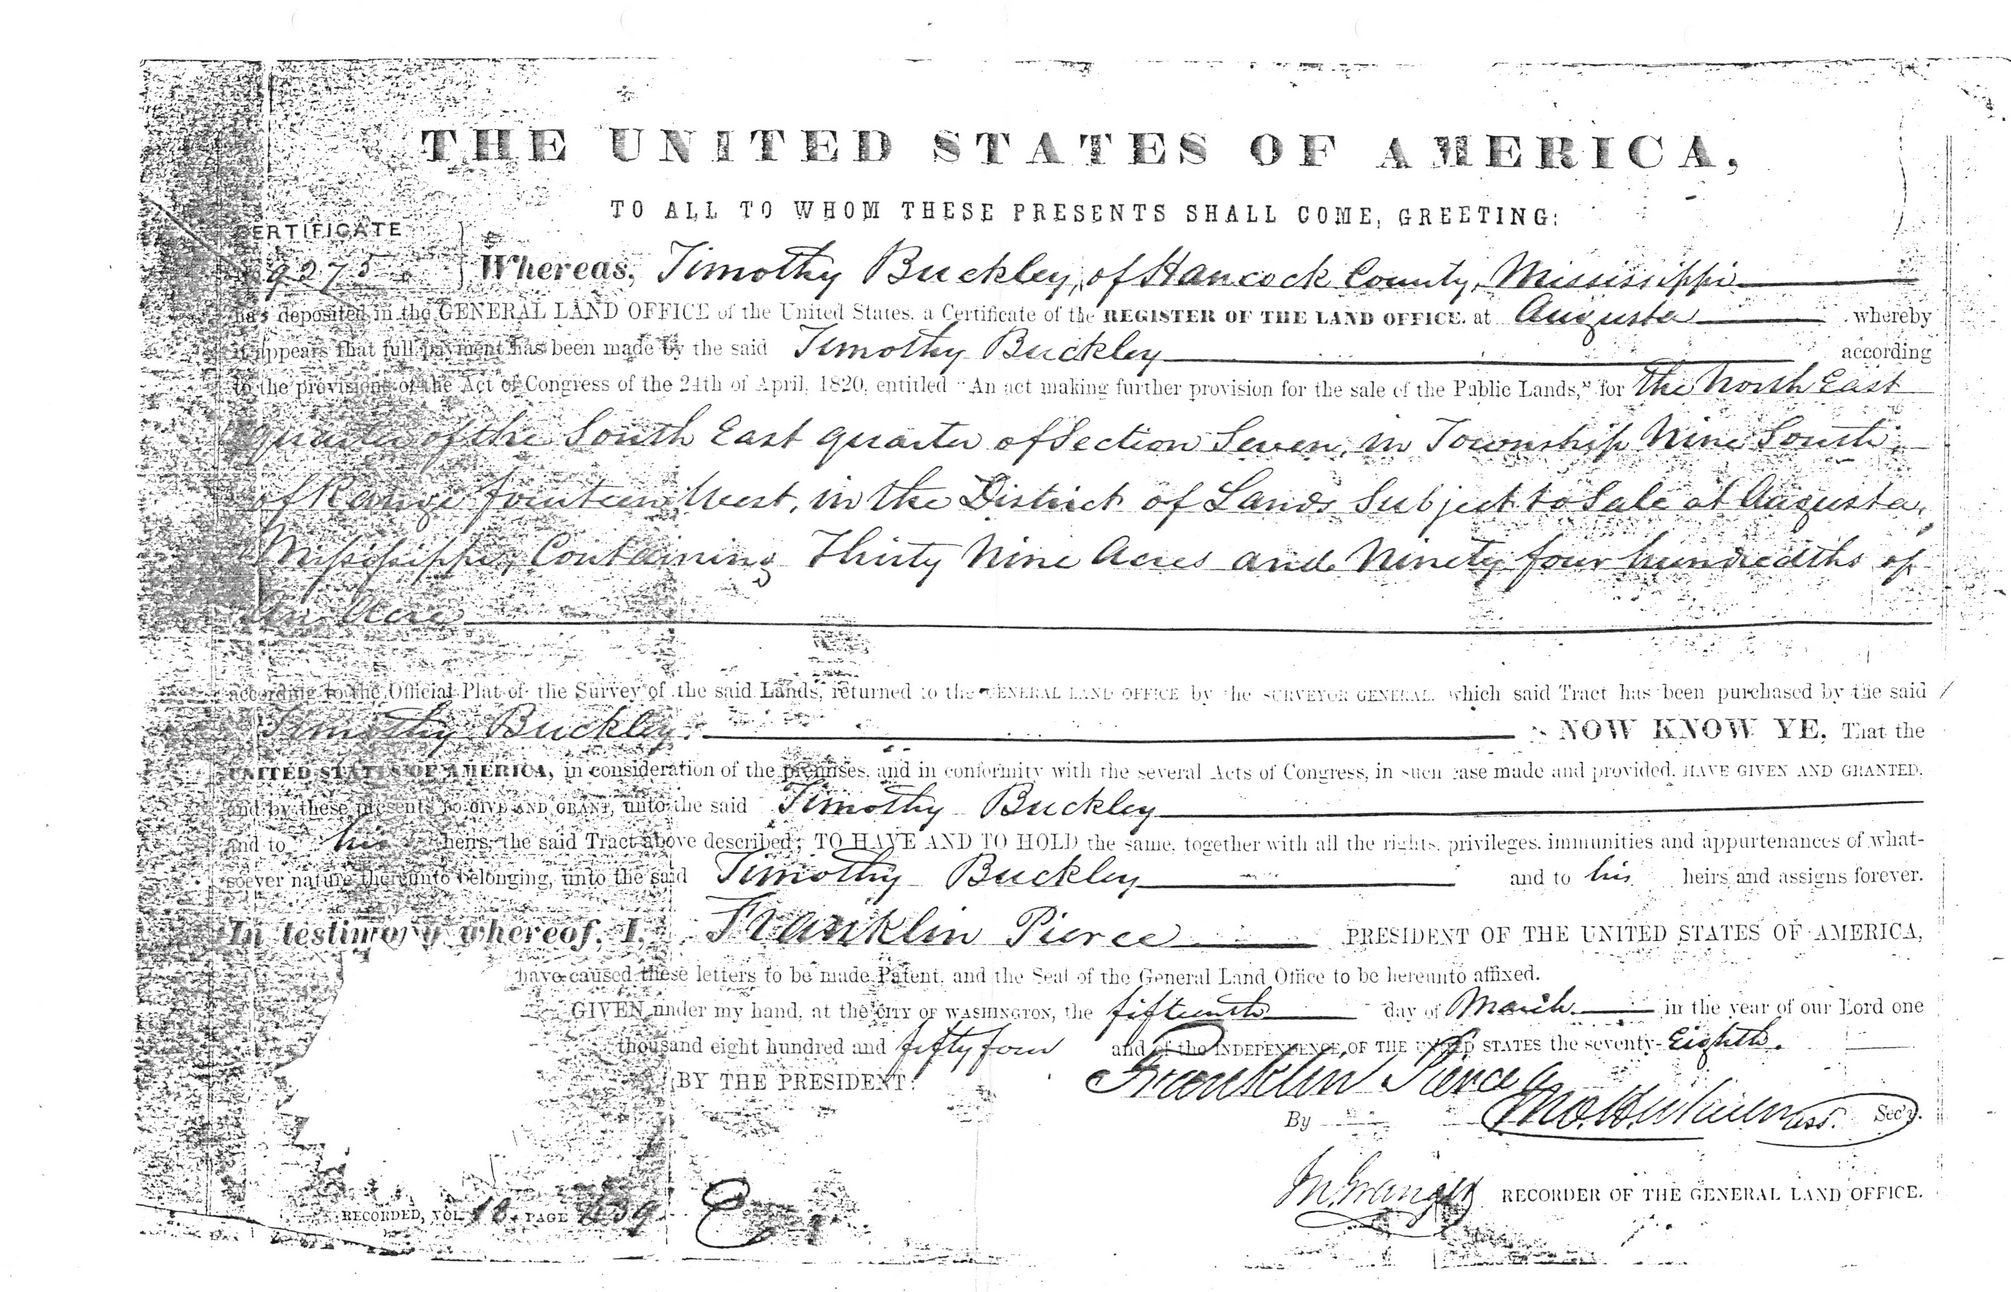 THE UNITED STATES OF AMERICA,
TO ALL TO WHOM THESE PRESENTS SHALL COME, GREETING:
CERTIFICATE
9275
Whereas, Timothy Buckley, of Hancock County, Mississippi
has deposited in the GENERAL LAND OFFICE of the United States, a Certificate of the REGISTER OF THE LAND OFFICE, at Augusta whereby
it appears that full payment has been made by the said Timothy Buckley according
to the provisions of the Act of Congress of the 24th of April, 1820, entitled "An act making further provision for the sale of the Public Lands," for The North East
quarter of the South East quarter of Section Seven, in Township Nine South,
of Range fourteen West, in the District of Lands Subject to Sale at Augusta,
Mississippi, Containing Thirty Nine Acres and Ninety four hundredths of
an Acre
according to the Official Plat of the Survey of the said Lands, returned to the GENERAL LAND OFFICE by the SURVEYOR GENERAL, which said Tract has been purchased by the said
Timothy Buckley, NOW KNOW YE, That the
UNITED STATES OF AMERICA, in consideration of the premises, and in conformity with the several Acts of Congress, in such case made and provided, HAVE GIVEN AND GRANTED,
and by these presents DO GIVE AND GRANT, unto the said Timothy Buckley
and to his heirs, the said Tract above described; TO HAVE AND TO HOLD the same, together with all the rights, privileges, immunities and appurtenances of what-
soever nature thereunto belonging, unto the said Timothy Buckley and to his heirs and assigns forever.
In testimony whereof, I, Franklin Pierce PRESIDENT OF THE UNITED STATES OF AMERICA,
have caused these letters to be made Patent, and the Seal of the General Land Office to be hereunto affixed.
GIVEN under my hand, at the CITY OF WASHINGTON, the fifteenth day of March in the year of our Lord one
thousand eight hundred and fifty four and of the INDEPENDENCE OF THE UNITED STATES the seventy-Eighth.
BY THE PRESIDENT: Franklin Pierce
By Ass. Sec'y.
Granger RECORDER OF THE GENERAL LAND OFFICE.
RECORDED, VOL. 18 PAGE